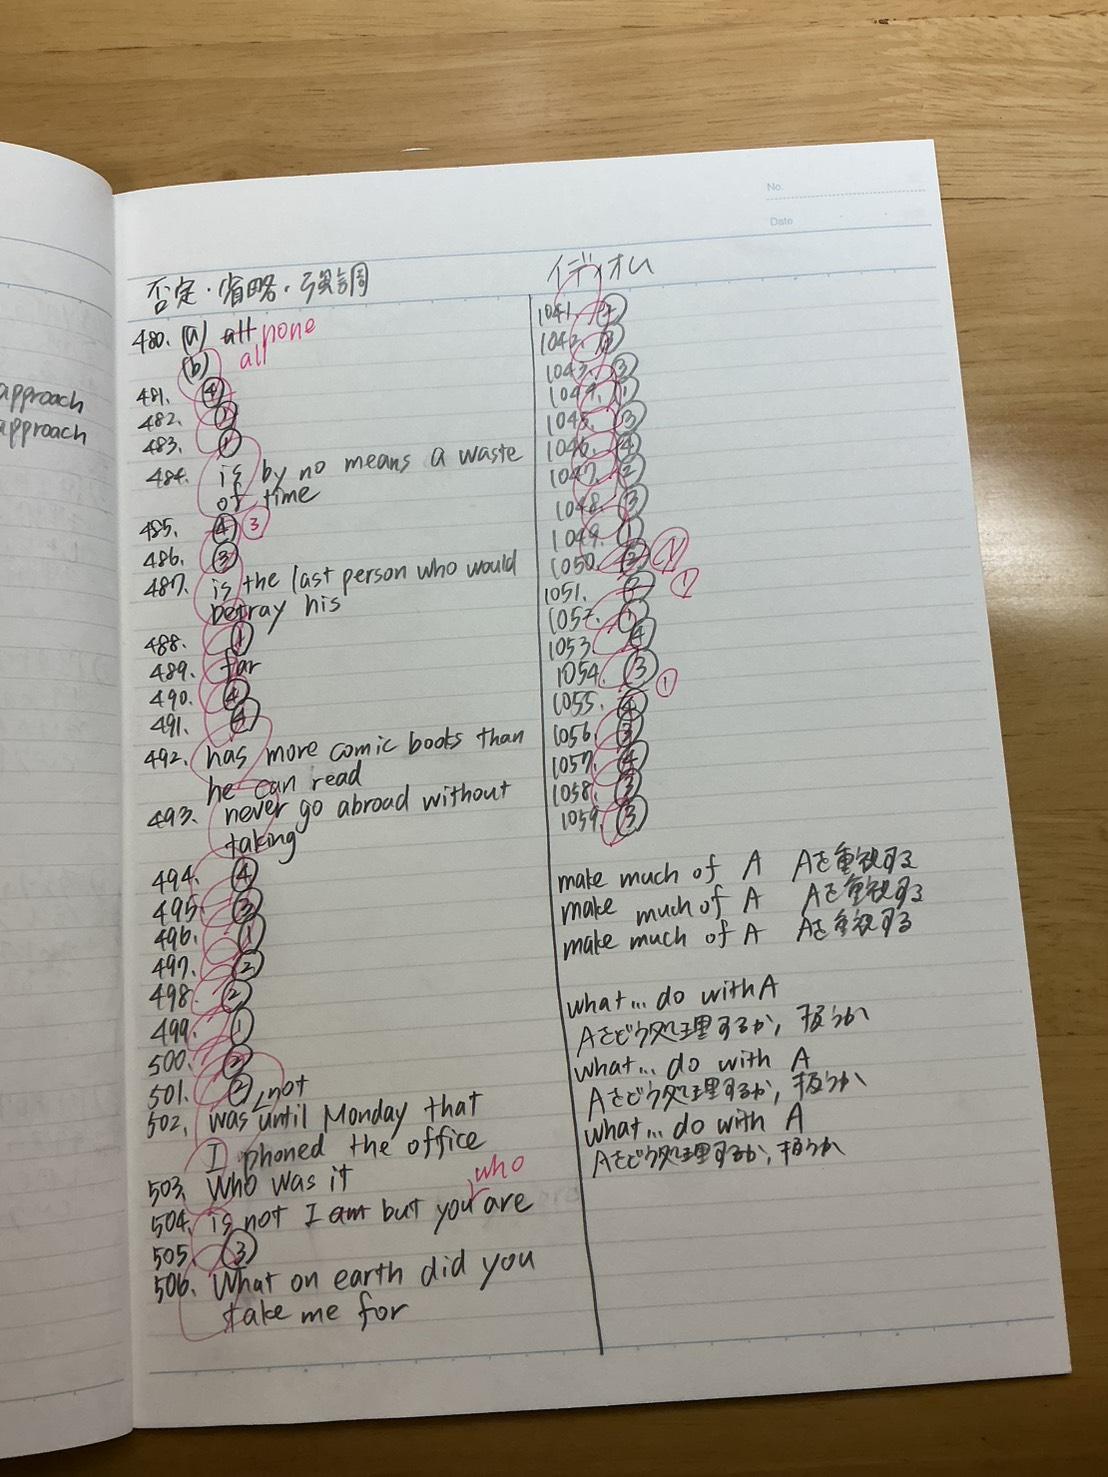 approach
approach
No.
Date
否定・省略・強調
480. (a) all none
(b) all
481. ④
482. ①
483. ①
484. is by no means a waste
of time
485. ④ ③
486. ③
487. is the last person who would
betray his
488. ①
489. far
490. ④
491. ④
492. has more comic books than
he can read
493. never go abroad without
taking
494. ④
495. ③
496. ①
497. ②
498. ②
499. ①
500. ②
501. ②
502. was not until Monday that
I phoned the office
503. Who was it
504. is not I am but you who are
505. ③
506. What on earth did you
take me for
イディオム
1041.
1042.
1043. ③
1044. ①
1045. ③
1046. ④
1047. ②
1048. ③
1049. ①
1050.
1051. ①
1052. ①
1053 ④
1054. ③
1055. ④ ①
1056. ③
1057. ④
1058. ③
1059. ③
make much of A Aを重視する
make much of A Aを重視する
make much of A Aを重視する
what... do with A
Aをどう処理するか, 扱うか
what... do with A
Aをどう処理するか, 扱うか
what... do with A
Aをどう処理するか, 扱うか